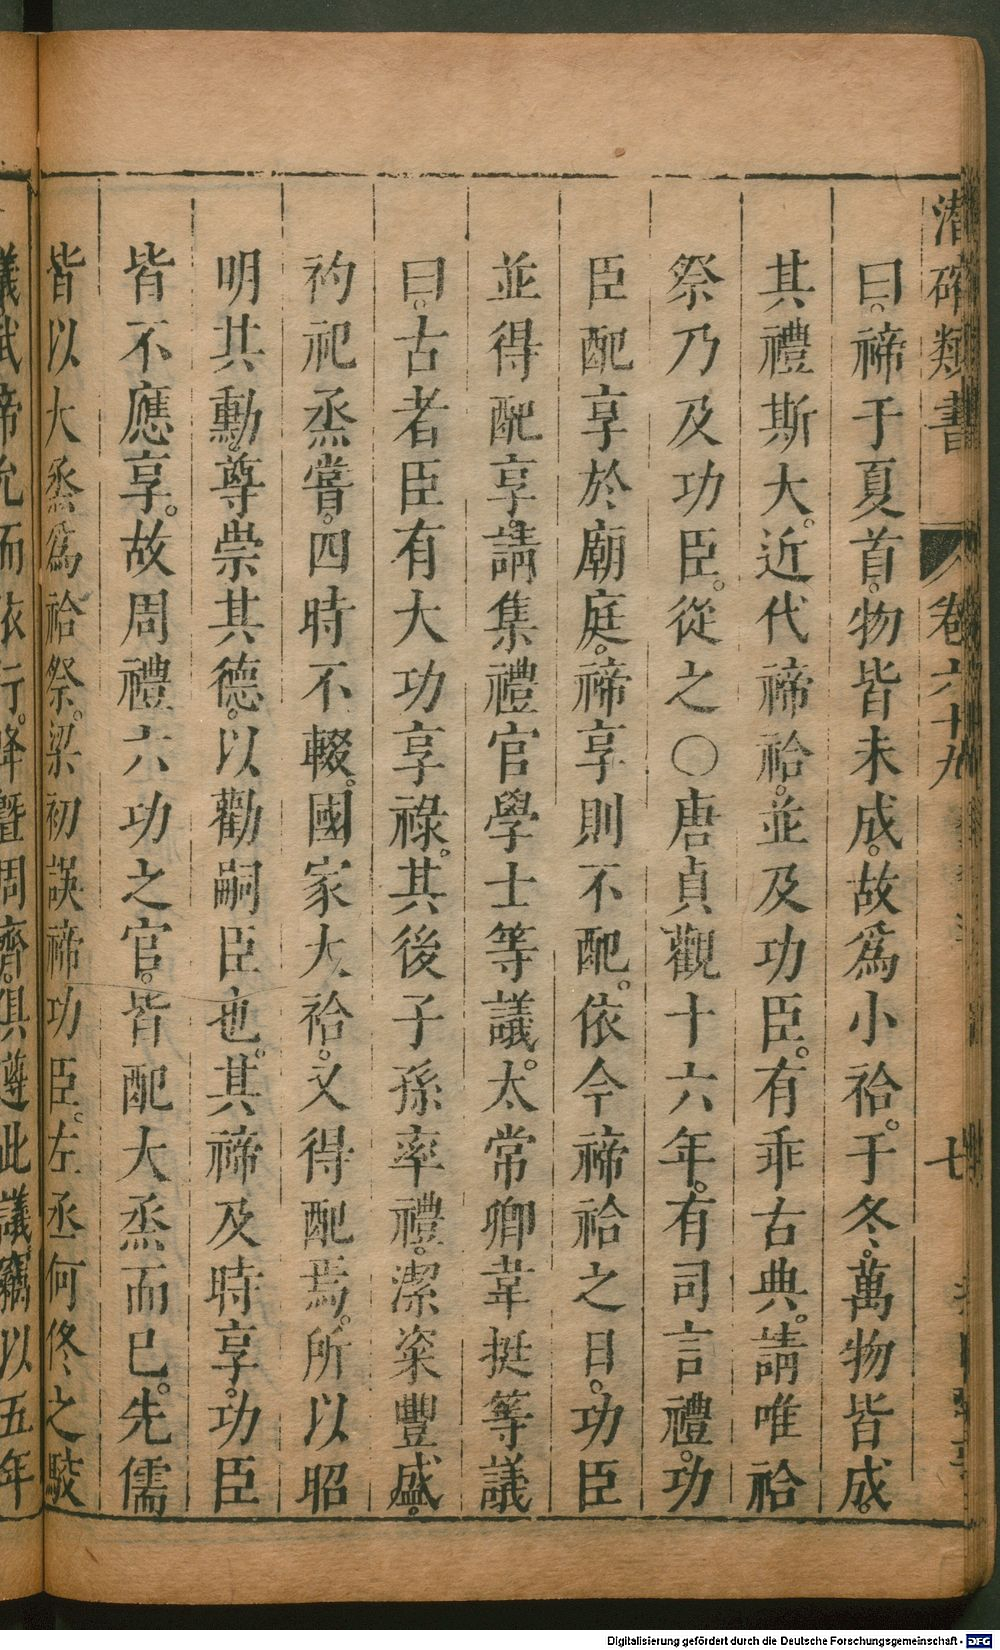 潛確類書 卷六十九 七
曰。禘于夏首。物皆未成。故爲小祫。于冬。萬物皆成。
其禮斯大。近代禘祫。並及功臣。有乖古典。請唯祫
祭乃及功臣。從之〇唐貞觀十六年。有司言禮。功
臣配享於廟庭。禘享則不配。依令禘祫之日。功臣
並得配享。請集禮官學士等議。太常卿韋挺等議
曰。古者臣有大功享祿。其後子孫率禮。潔粢豐盛。
礿祀烝嘗。四時不輟。國家大祫。又得配焉。所以昭
明其勳。尊崇其德。以勸嗣臣也。其禘及時享。功臣
皆不應享。故周禮六功之官。皆配大烝而已。先儒
皆以大烝爲祫祭。梁初誤禘功臣。左丞何佟之駁
議。武帝允而依行。降曁周齊。俱遵此議。竊以五年
Digitalisierung gefördert durch die Deutsche Forschungsgemeinschaft - DFG